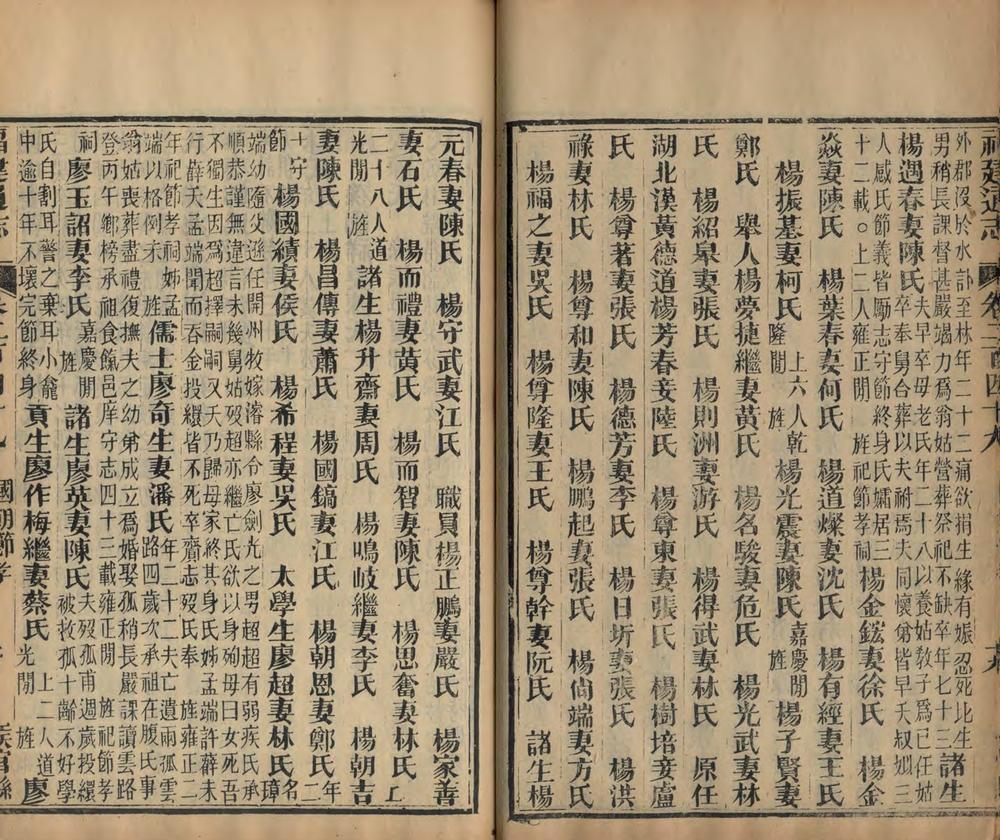 外郡沒於水訃至林年二十二痛欲捐生緣有娠忍死比生
男稍長課督甚嚴竭力爲翁姑營葬祭祀不缺卒年七十三諸生
楊遇春妻陳氏夫早卒母老氏年二十八以養姑敎子爲已任姑
卒奉舅合葬以夫祔焉夫同懷弟皆早夭叔姒三
人感氏節義皆勵志守節終身氏孀居三
十二載○上二人雍正閒旌祀節孝祠楊金鋐妻徐氏 楊金
焱妻陳氏 楊葉春妻何氏 楊道燦妻沈氏 楊有經妻王氏
楊振基妻柯氏上六人乾隆閒旌楊光震妻陳氏嘉慶閒旌楊子賢妻
鄭氏 舉人楊夢捷繼妻黃氏 楊名駿妻危氏 楊光武妻林
氏 楊紹皋妻張氏 楊則洲妻游氏 楊得武妻林氏 原任
湖北漢黃德道楊芳春妾陸氏 楊尊東妻張氏 楊樹培妾盧
氏 楊尊著妻張氏 楊德芳妻李氏 楊日圻妻張氏 楊洪
祿妻林氏 楊尊和妻陳氏 楊鵬起妻張氏 楊尙端妻方氏
楊福之妻吳氏 楊尊隆妻王氏 楊尊幹妻阮氏 諸生楊
元春妻陳氏 楊守武妻江氏 職員楊正鵬妻嚴氏 楊家善
妻石氏 楊而禮妻黃氏 楊而智妻陳氏 楊思奮妻林氏上
二十八人道光閒旌諸生楊升齋妻周氏 楊鳴岐繼妻李氏 楊朝吉
妻陳氏 楊昌傳妻蕭氏 楊國鎬妻江氏 楊朝恩妻鄭氏年二
十守節楊國績妻侯氏 楊希程妻吳氏 太學生廖超妻林氏名璋
端幼隨父遜任開州牧嫁濬縣令廖劍光之男超超有弱疾氏承
順恭謹無違言未幾舅姑歿超亦繼亡氏欲以身殉母曰女死吾
不獨生因爲超擇嗣嗣又夭乃歸母家終其身氏姊孟端許薛未
行薛夭孟端聞而吞金投繯皆不死卒齎志歿氏奉旌雍正二
年祀節孝祠姊孟端以格例未旌儒士廖奇生妻潘氏年二十二夫亡遺兩孤雲路四歲次承祖在腹氏事
翁姑喪葬盡禮復撫夫之幼弟成立爲婚娶孤稍長嚴課讀雲路
登丙午鄉榜承祖食餼邑庠守志四十三載雍正閒旌祀節孝
祠廖玉詔妻李氏嘉慶閒旌諸生廖英妻陳氏夫歿孤甫週歲投繯被救孤十齡不好學
氏自割耳警之棄耳小龕
中逾十年不壞完節終身貢生廖作梅繼妻蔡氏上二人道光閒旌廖